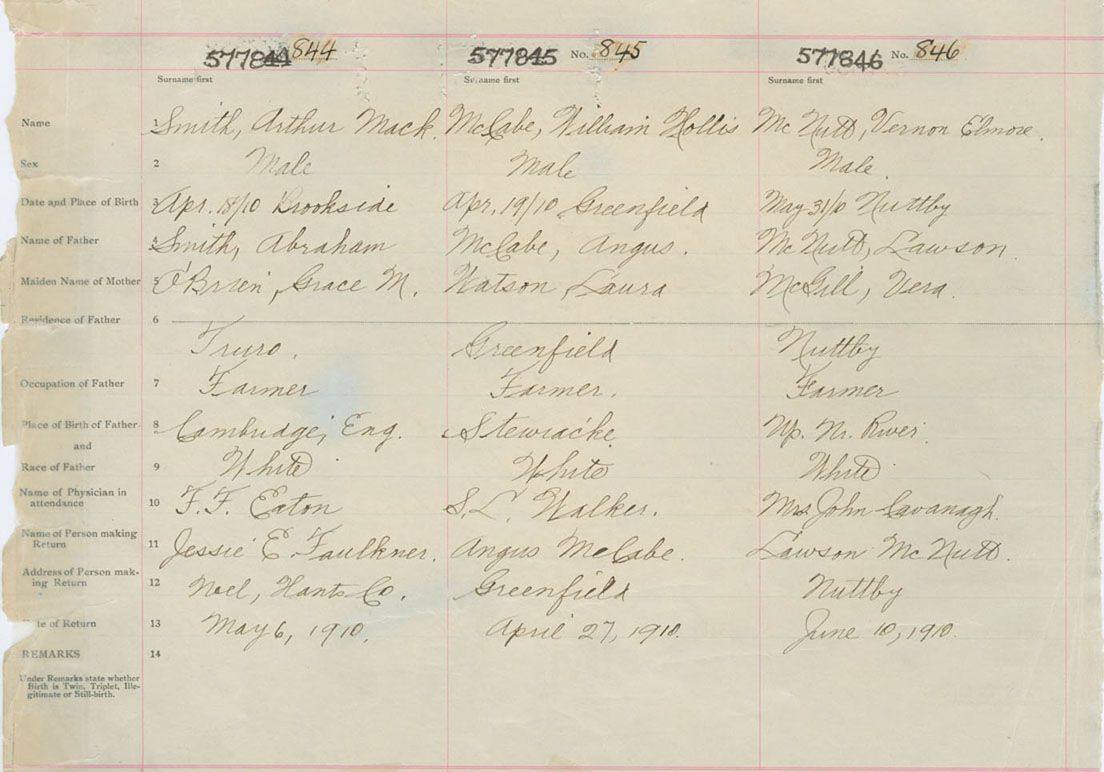 577844 844 577845 No. 845 577846 No. 846
Surname first Surname first Surname first
Name 1 Smith, Arthur Mack. McCabe, William Hollis Mc Nutt, Vernon Elmore.
Sex 2 Male Male Male.
Date and Place of Birth 3 Apr. 18/10 Brookside Apr, 19/10 Greenfield May 31/10 Nuttby
Name of Father 4 Smith, Abraham McCabe, Angus. Mc Nutt, Lawson.
Maiden Name of Mother 5 O'Brien, Grace M. Watson, Laura McGill, Vera.
Residence of Father 6
Truro. Greenfield Nuttby
Occupation of Father 7 Farmer Farmer. Farmer
Place of Birth of Father 8 Cambridge, Eng. Stewiacke Up. Nr. River.
and
Race of Father 9 White White White
Name of Physician in
attendance 10 F. F. Eaton S. L. Walker. Mrs John Cavanagh.
Name of Person making
Return 11 Jessie E Faulkner. Angus McCabe. Lawson Mc Nutt.
Address of Person mak-
ing Return 12 Noel, Hants Co. Greenfield Nuttby
Date of Return 13 May 6, 1910. April 27, 1910. June 10, 1910.
REMARKS 14
Under Remarks state whether
Birth is Twin, Triplet, Ille-
gitimate or Still-birth.